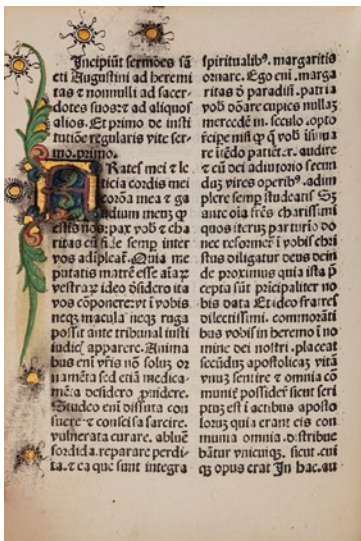 Incipiūt sermões sā
cti Augustini ad heremi
tas ⁊ nonnulli ad sacer-
dotes suos ⁊ ad aliquos
alios. Et primo de insti
tutiōe regularis vite ser-
mo. primo.
FRatres mei ⁊ le
ticia cordis mei
corōa mea ⁊ ga
udium meuz
estis nos: pax vob ⁊ cha
ritas cū fide semp inter
vos adipleat. Quia me
putatis matrē esse
vestraꝝ ideo dsidero ita
vos cōponere: vt ī vobis
neqꝫ macula neqꝫ ruga
possit ante tribunal iusti
iudic apparere. Anima
bus eni vris nō soluꝫ or
namēta sed etiā medica-
mēta desidero puidere.
Studeo eni dissuta con
suere ⁊ consci sa sarcire.
vulnerata curare. abluē
sordida. reparare perdi-
ta. ⁊ ea que sunt integra
spiritualibꝰ. margaritis
ornare. Ego eni. marga
ritas d paradisi. patria
vob dōare cupies nullaꝫ
mercedē in. seculo. opto
recipe nisi
audire
⁊ cū dei adiutorio secun
duꝫ vires operibꝰ. adim
plere semp studeatis
ante oīa frēs charissimi
quos iteruꝫ parturio do
nec reformet ī vobis chri
stus diligatur deus dein
de proximus quia ista p
cepta sūt prīcipaliter no
bis data Et ideo fratres
dilectissimi. commorāti
bus vobis in heremo ī no
mine dei nostri. placeat
secūduꝫ apostolicaꝫ vitā
vnuꝫ sentire ⁊ omnia cō
munit possidere sicut scri
ptuꝫ est ī actibus aposto
loruꝫ quia erant eis com
munia omnia. distribue
bātur vnicuiqꝫ. sicut. cui
qꝫ opus erat In hac. au